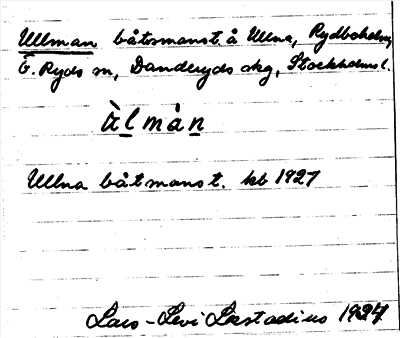 Ullman båtsmanst. å Ullna, Rydboholm,
Ö. Ryds sn, Danderyds skg, Stockholms l.
àlmàn
Ullna båtmanst. kb 1927
Lars-Levi Læstadius 1927